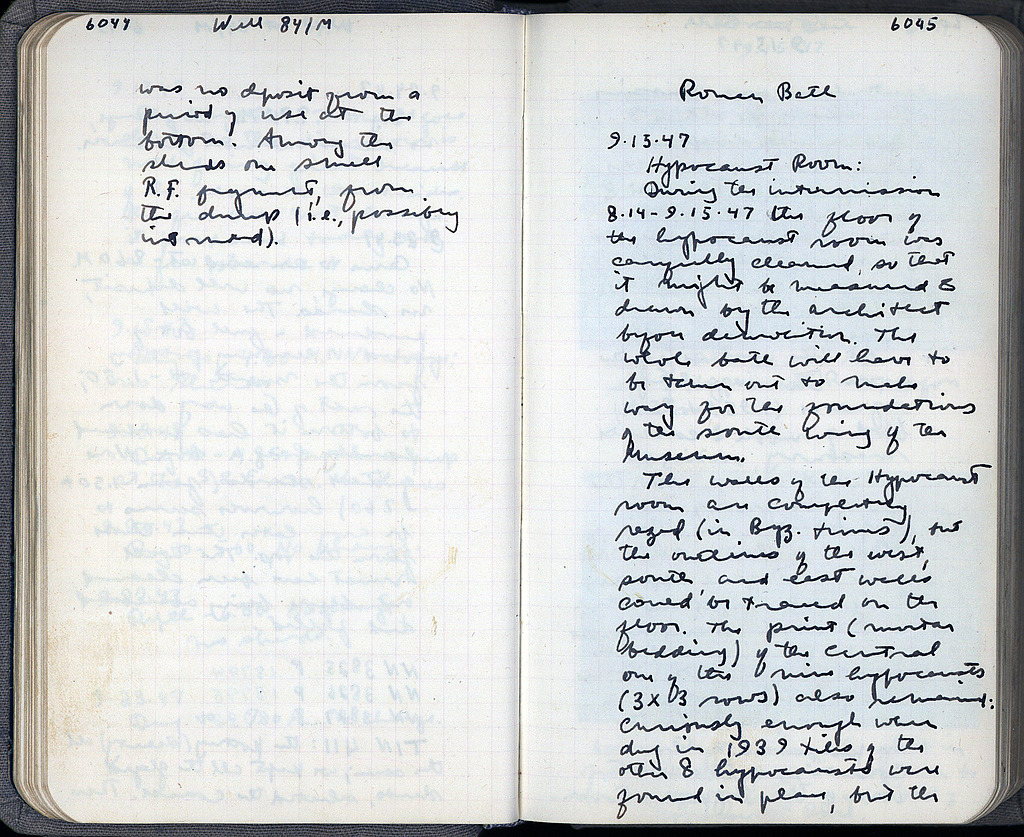 6044 Well 84/M
was no deposit from a
period of use at the
bottom. Among the
sherds one small
R.F. fragment, from
the dump (i.e., possibly
6045
Roman Bath
9.15.47
Hypocaust Room:
During the intermission
8.14-9.15.47 the floor of
the hypocaust room was
carefully cleaned, so that
it might be measured &
drawn by the architect
before demolition. The
whole bath will have to
be torn out to make
way for the foundations
of the south wing of the
Museum.
The walls of the Hypocaust
room are completely
razed (in Byz. times), but
the outlines of the west,
south and east walls
could be traced on the
floor. The print (mortar
bedding) of the central
one of the nine hypocausts
(3x3 rows) also remained:
curiously enough when
dug in 1939 tiles of the
other 8 hypocausts were
found in place, but the